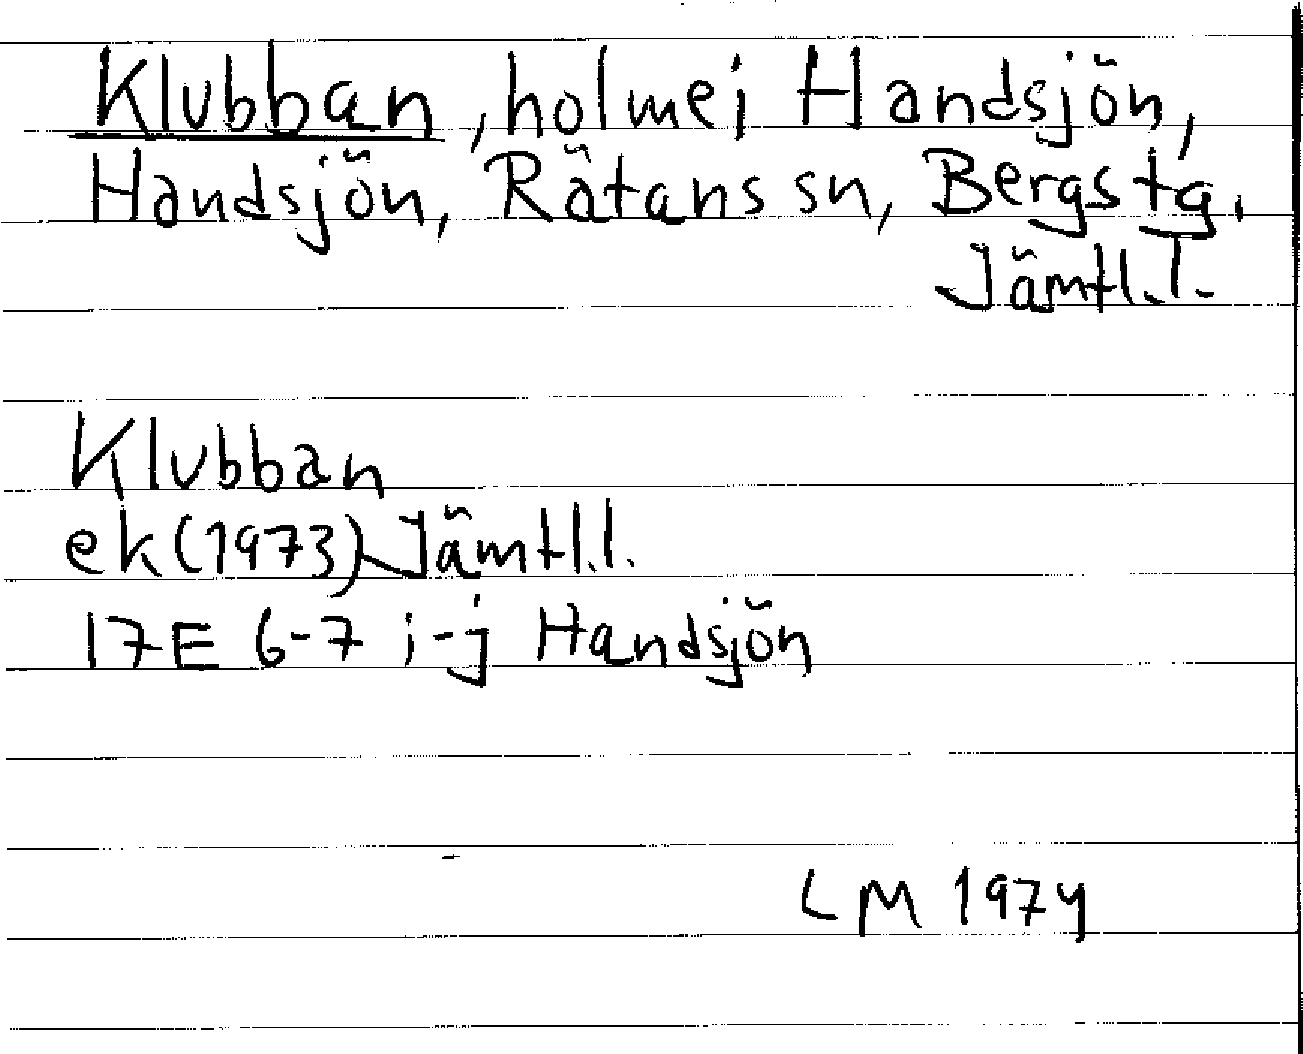 Klubban, holme i Handsjön,
Handsjön, Rätans sn, Bergs tg.
Jämtl.l.
Klubban
ek (1973) Jämtl.l.
17E 6-7 i-j Handsjön
LM 1974